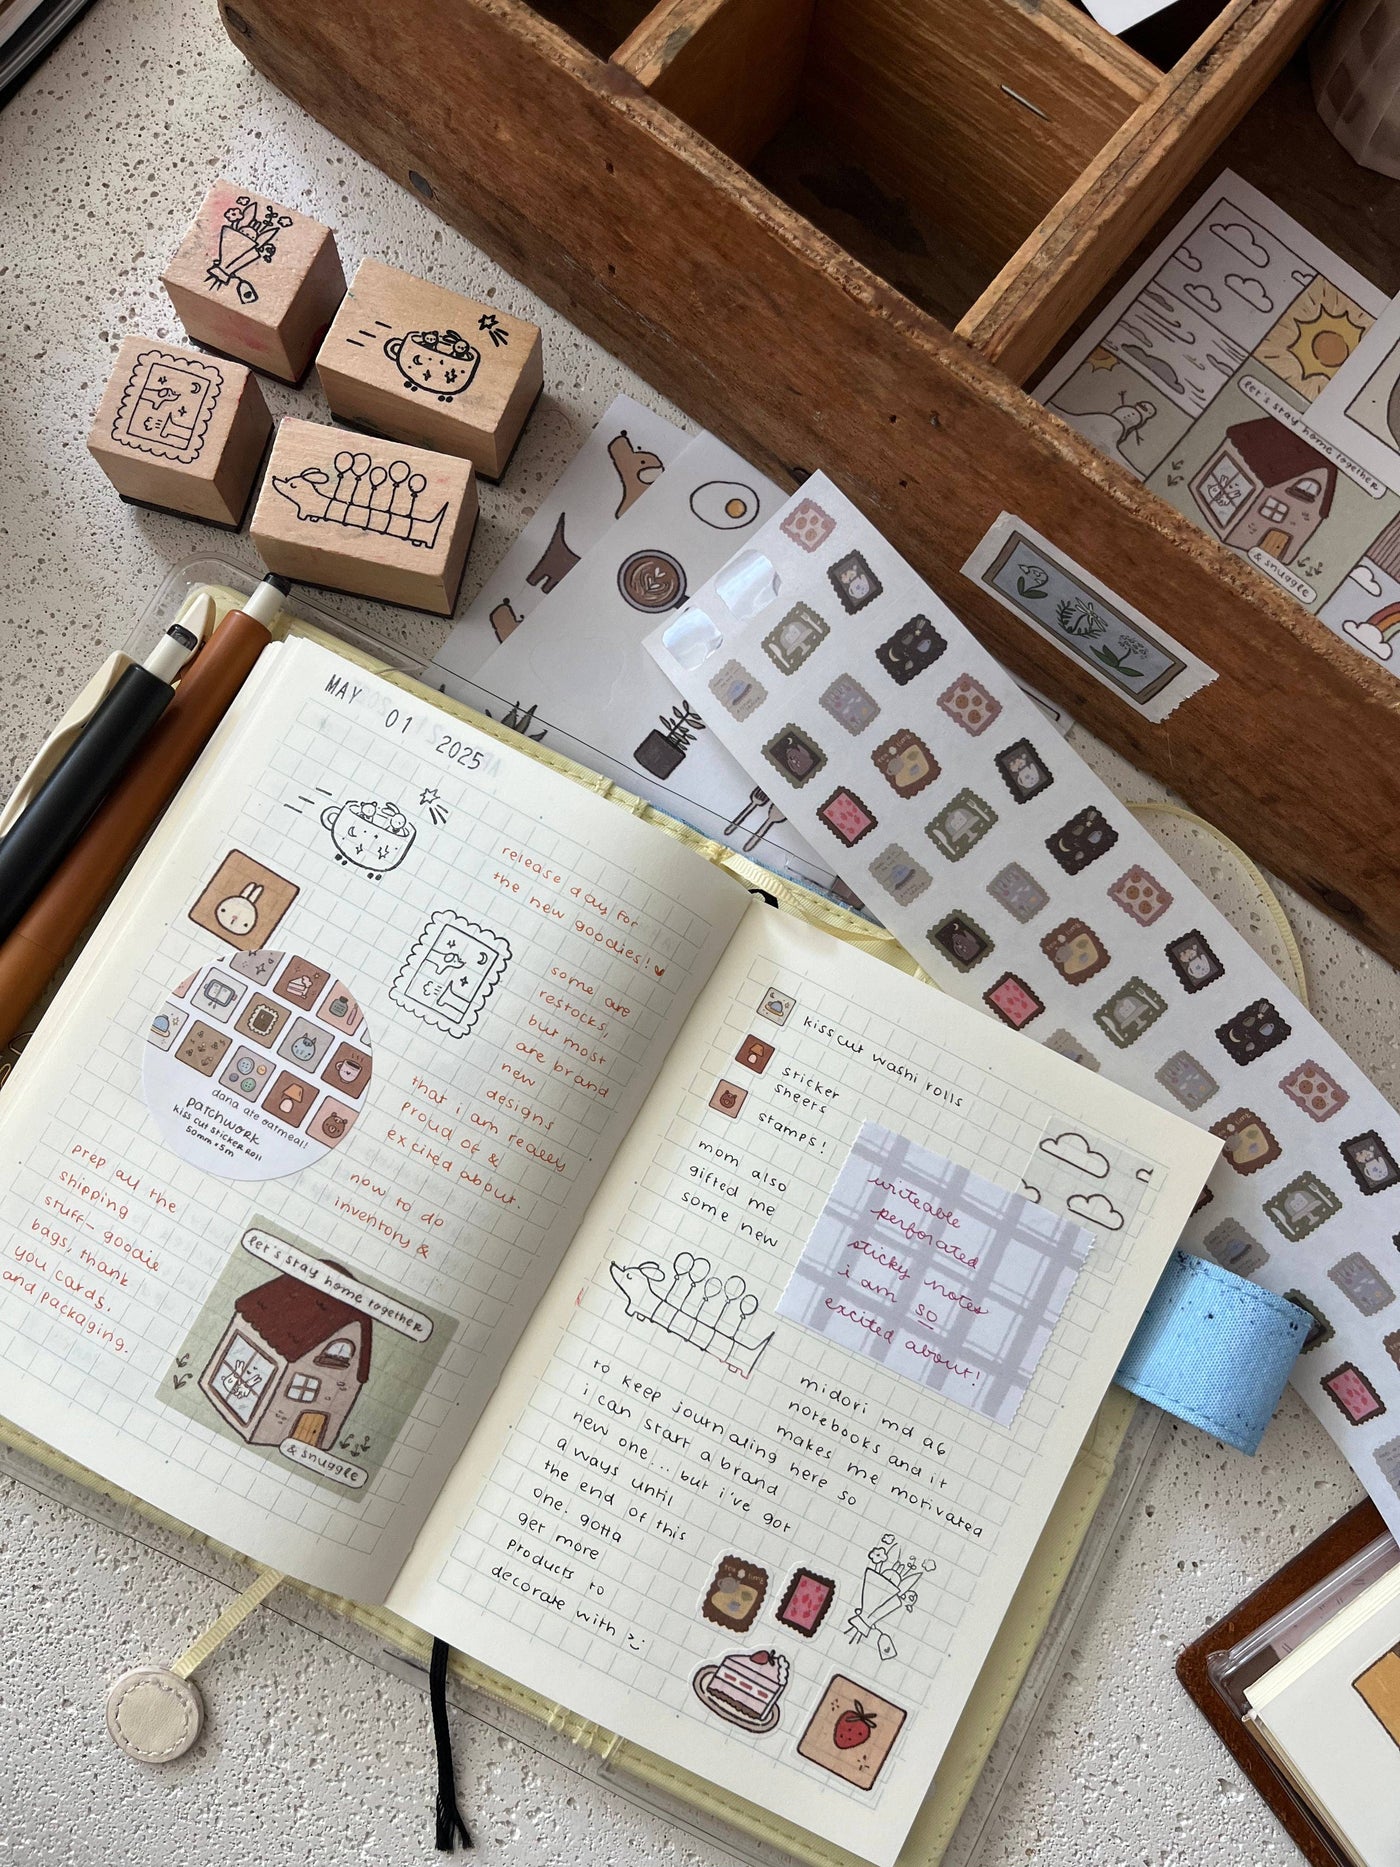 MAY 01 2025
release day for
the new goodies!
some are
restocks,
but most
are brand
new
designs
that i am really
proud of &
excited about.
now to do
inventory &
prep all the
shipping
stuff- goodie
bags, thank
you cards,
and packaging.
dana ate oatmeal!
patchwork
kiss cut sticker roll
50mm * 5m
let's stay home together
& snuggle
kiss cut washi rolls
sticker
sheets
stamps!
mom also
gifted me
some new
writeable
perforated
sticky notes
i am so
excited about!
midori md a6
notebooks and it
makes me motivated
to keep journaling here so
i can start a brand
new one... but i've got
a ways until
the end of this
one. gotta
get more
products to
decorate with :)
let's stay home together
& snuggle